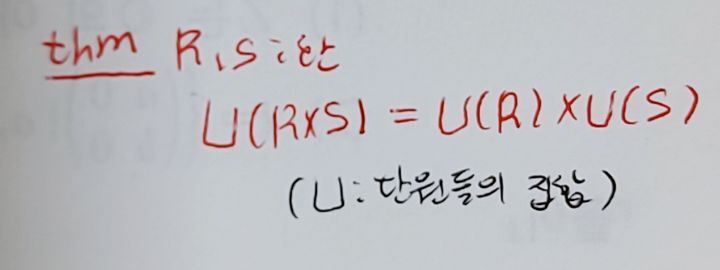 thm R, S : 환
U(R×S) = U(R) × U(S)
(U : 단원들의 집합)